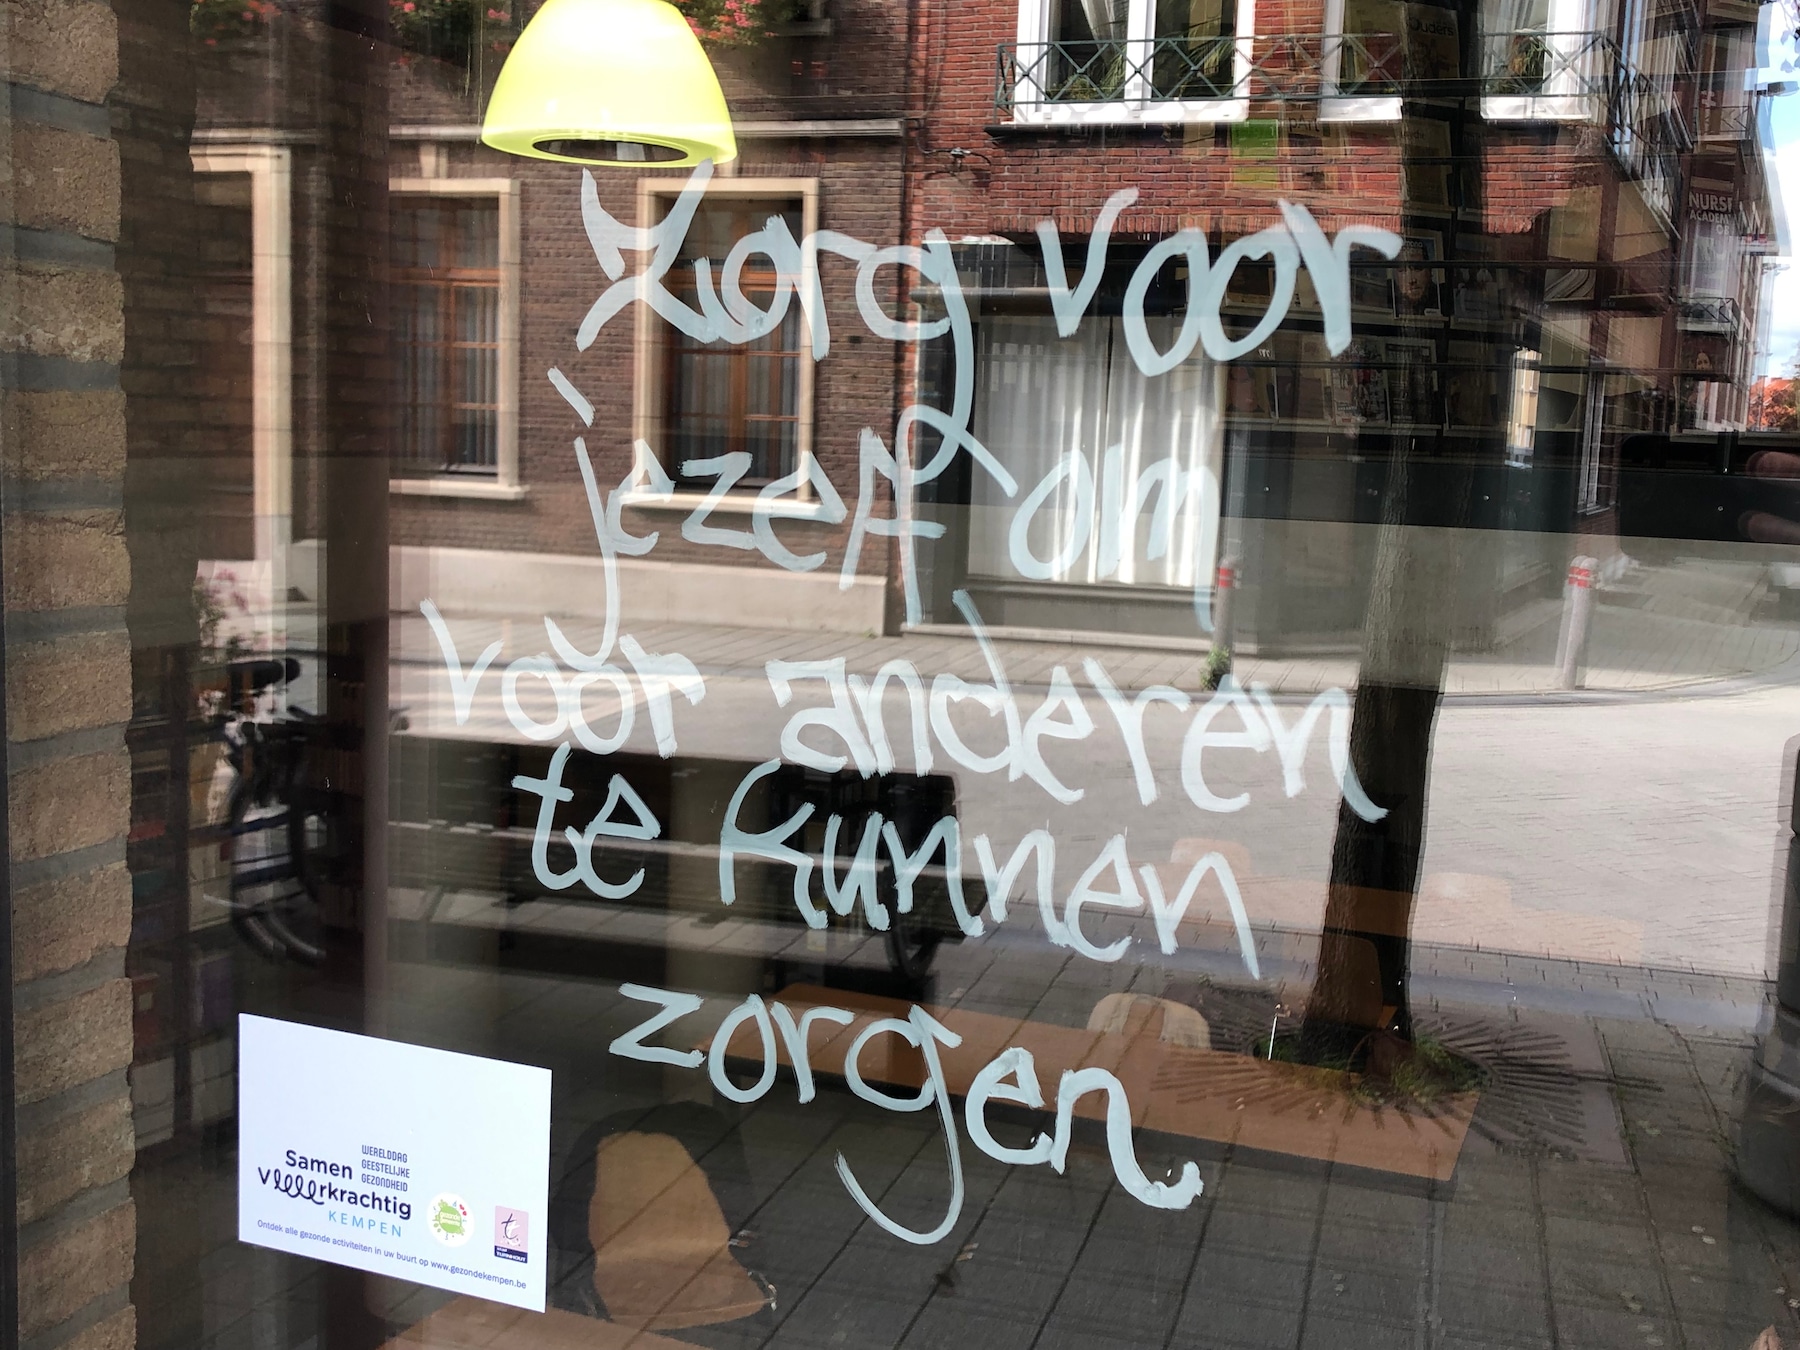 Zorg voor
jezelf om
voor anderen
te kunnen
zorgen
NURSE
ACADEMY
Samen
WERELDDAG
GEESTELIJKE
GEZONDHEID
veeerkrachtig
KEMPEN
TURNHOUT
Ontdek alle gezonde activiteiten in uw buurt op www.gezondekempen.be